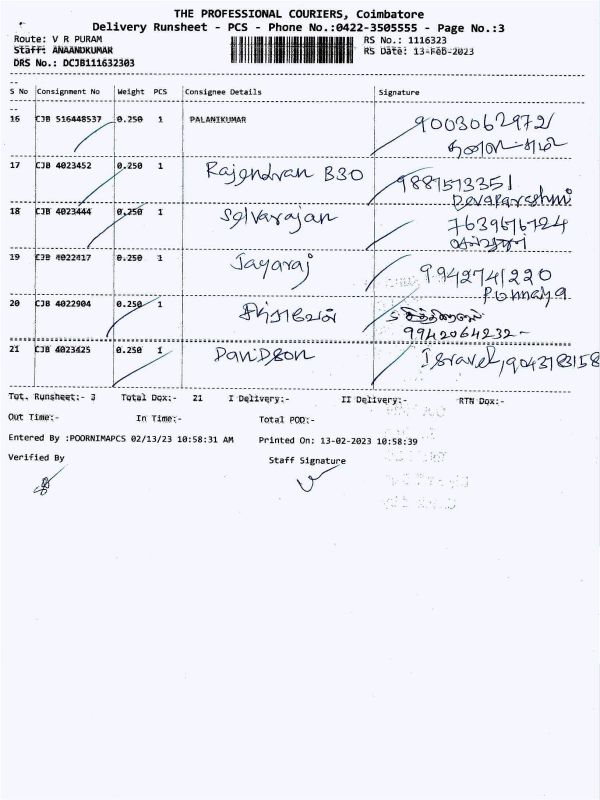 THE PROFESSIONAL COURIERS, Coimbatore
Delivery Runsheet - PCS - Phone No.:0422-3505555 - Page No.:3
Route: V R PURAM RS No.: 1116323
Staff: ANAANDKUMAR RS Date: 13-Feb-2023
DRS No.: DCJB111632303
S No Consignment No Weight PCS Consignee Details Signature
16 CJB 516448537 0.250 1 PALANIKUMAR 9003062972
17 CJB 4023452 0.250 1 Rajendran B30 9887573351
18 CJB 4023444 0.250 1 Selvarajan 7639676724
19 CJB 4022417 0.250 1 Jayaraj 9942741220
Ponnaya
20 CJB 4022904 0.250 1
9942064232-
21 CJB 4023425 0.250 1 DaviDson Isravel, 9043783158
Tot. Runsheet:- 3 Total Dox:- 21 I Delivery:- II Delivery:- RTN Dox:-
Out Time:- In Time:- Total POD:-
Entered By :POORNIMAPCS 02/13/23 10:58:31 AM Printed On: 13-02-2023 10:58:39
Verified By Staff Signature